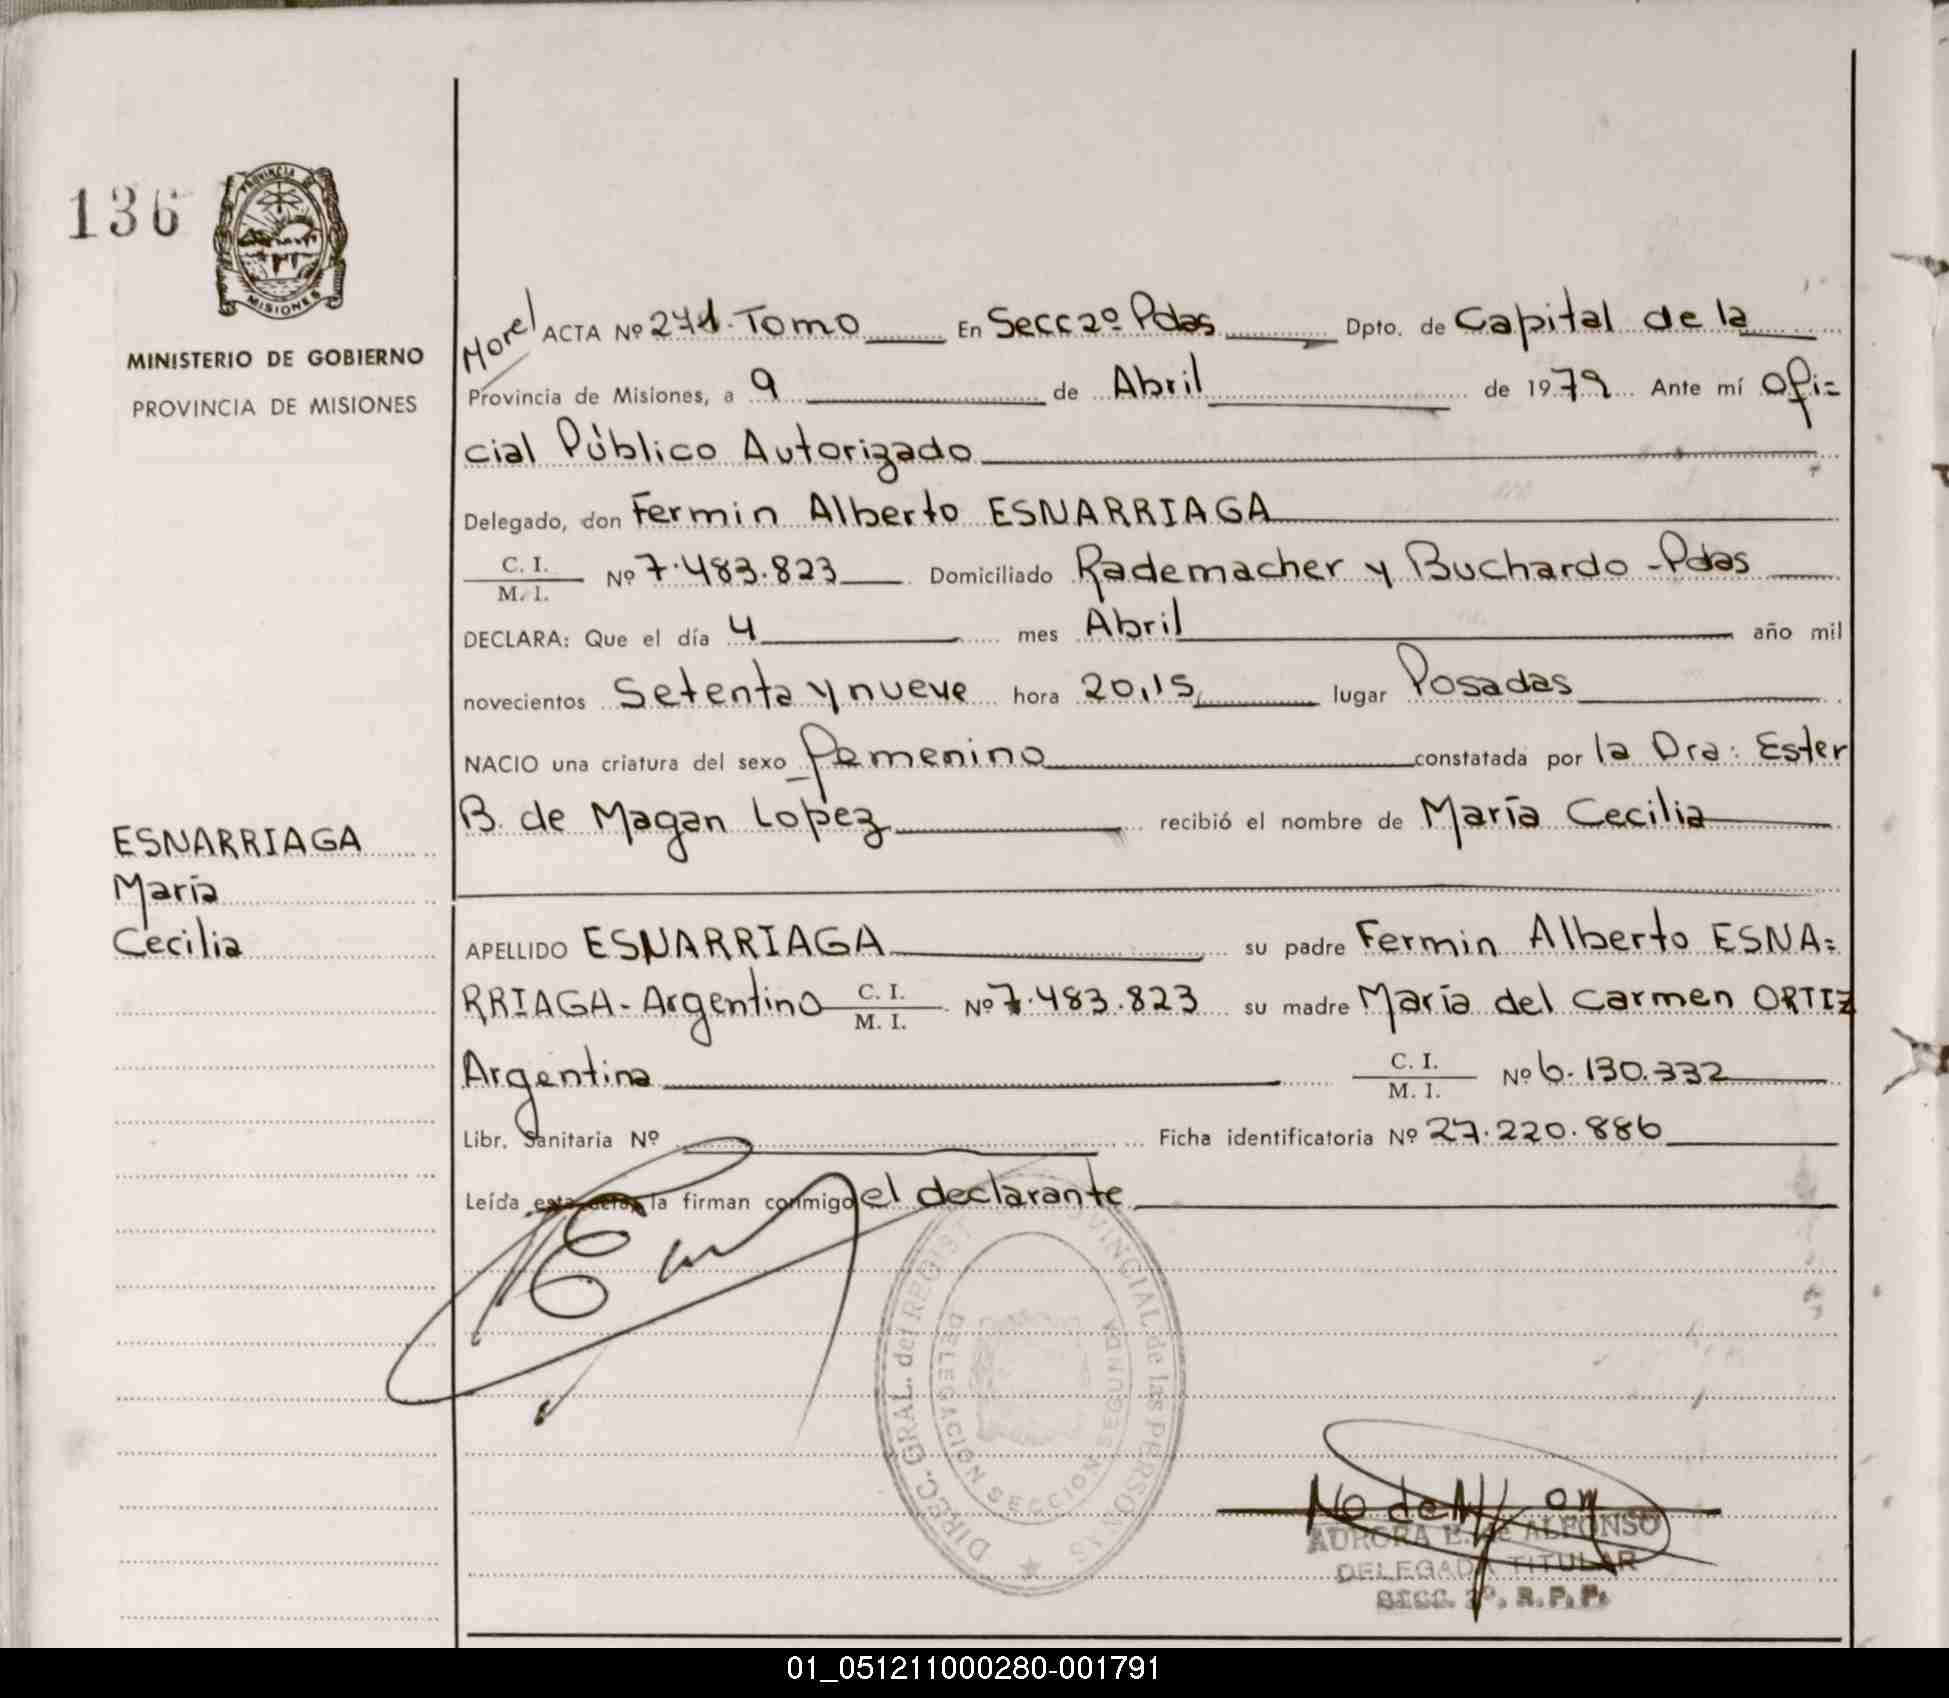 136
PROVINCIA DE
MISIONES
MINISTERIO DE GOBIERNO
PROVINCIA DE MISIONES
ESNARRIAGA
María
Cecilia
Morel ACTA Nº 271. Tomo En Secc 2º Pdas Dpto. de Capital de la
Provincia de Misiones, a 9 de Abril de 1979 Ante mí Ofi=
cial Público Autorizado
Delegado, don Fermin Alberto ESNARRIAGA
C. I.
M. I. Nº 7.483.823 Domiciliado Rademacher y Buchardo - Pdas
DECLARA: Que el día 4 mes Abril año mil
novecientos Setenta y nueve hora 20,15 lugar Posadas
NACIO una criatura del sexo femenino constatada por la Dra: Ester
B. de Magan Lopez recibió el nombre de María Cecilia
APELLIDO ESNARRIAGA su padre Fermin Alberto ESNA=
RRIAGA - Argentino C. I.
M. I. Nº 7.483.823 su madre María del Carmen ORTIZ
Argentina C. I.
M. I. Nº 6.130.332
Libr. Sanitaria Nº Ficha identificatoria Nº 27.220.886
Leída esta acta, la firman conmigo el declarante
DIREC. GRAL. del REGIST VINCIAL de las PERSONAS
DELEGACION SECCION SEGUNDA
AURORA E. de ALFONSO
DELEGADA TITULAR
SECC. 2º. R.P.P.
01_051211000280-001791